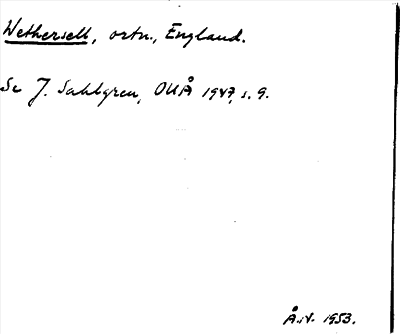 Wethersett, ortn., England.
Se J. Sahlgren, OUÅ 1947, s. 9.
Å.N. 1953.